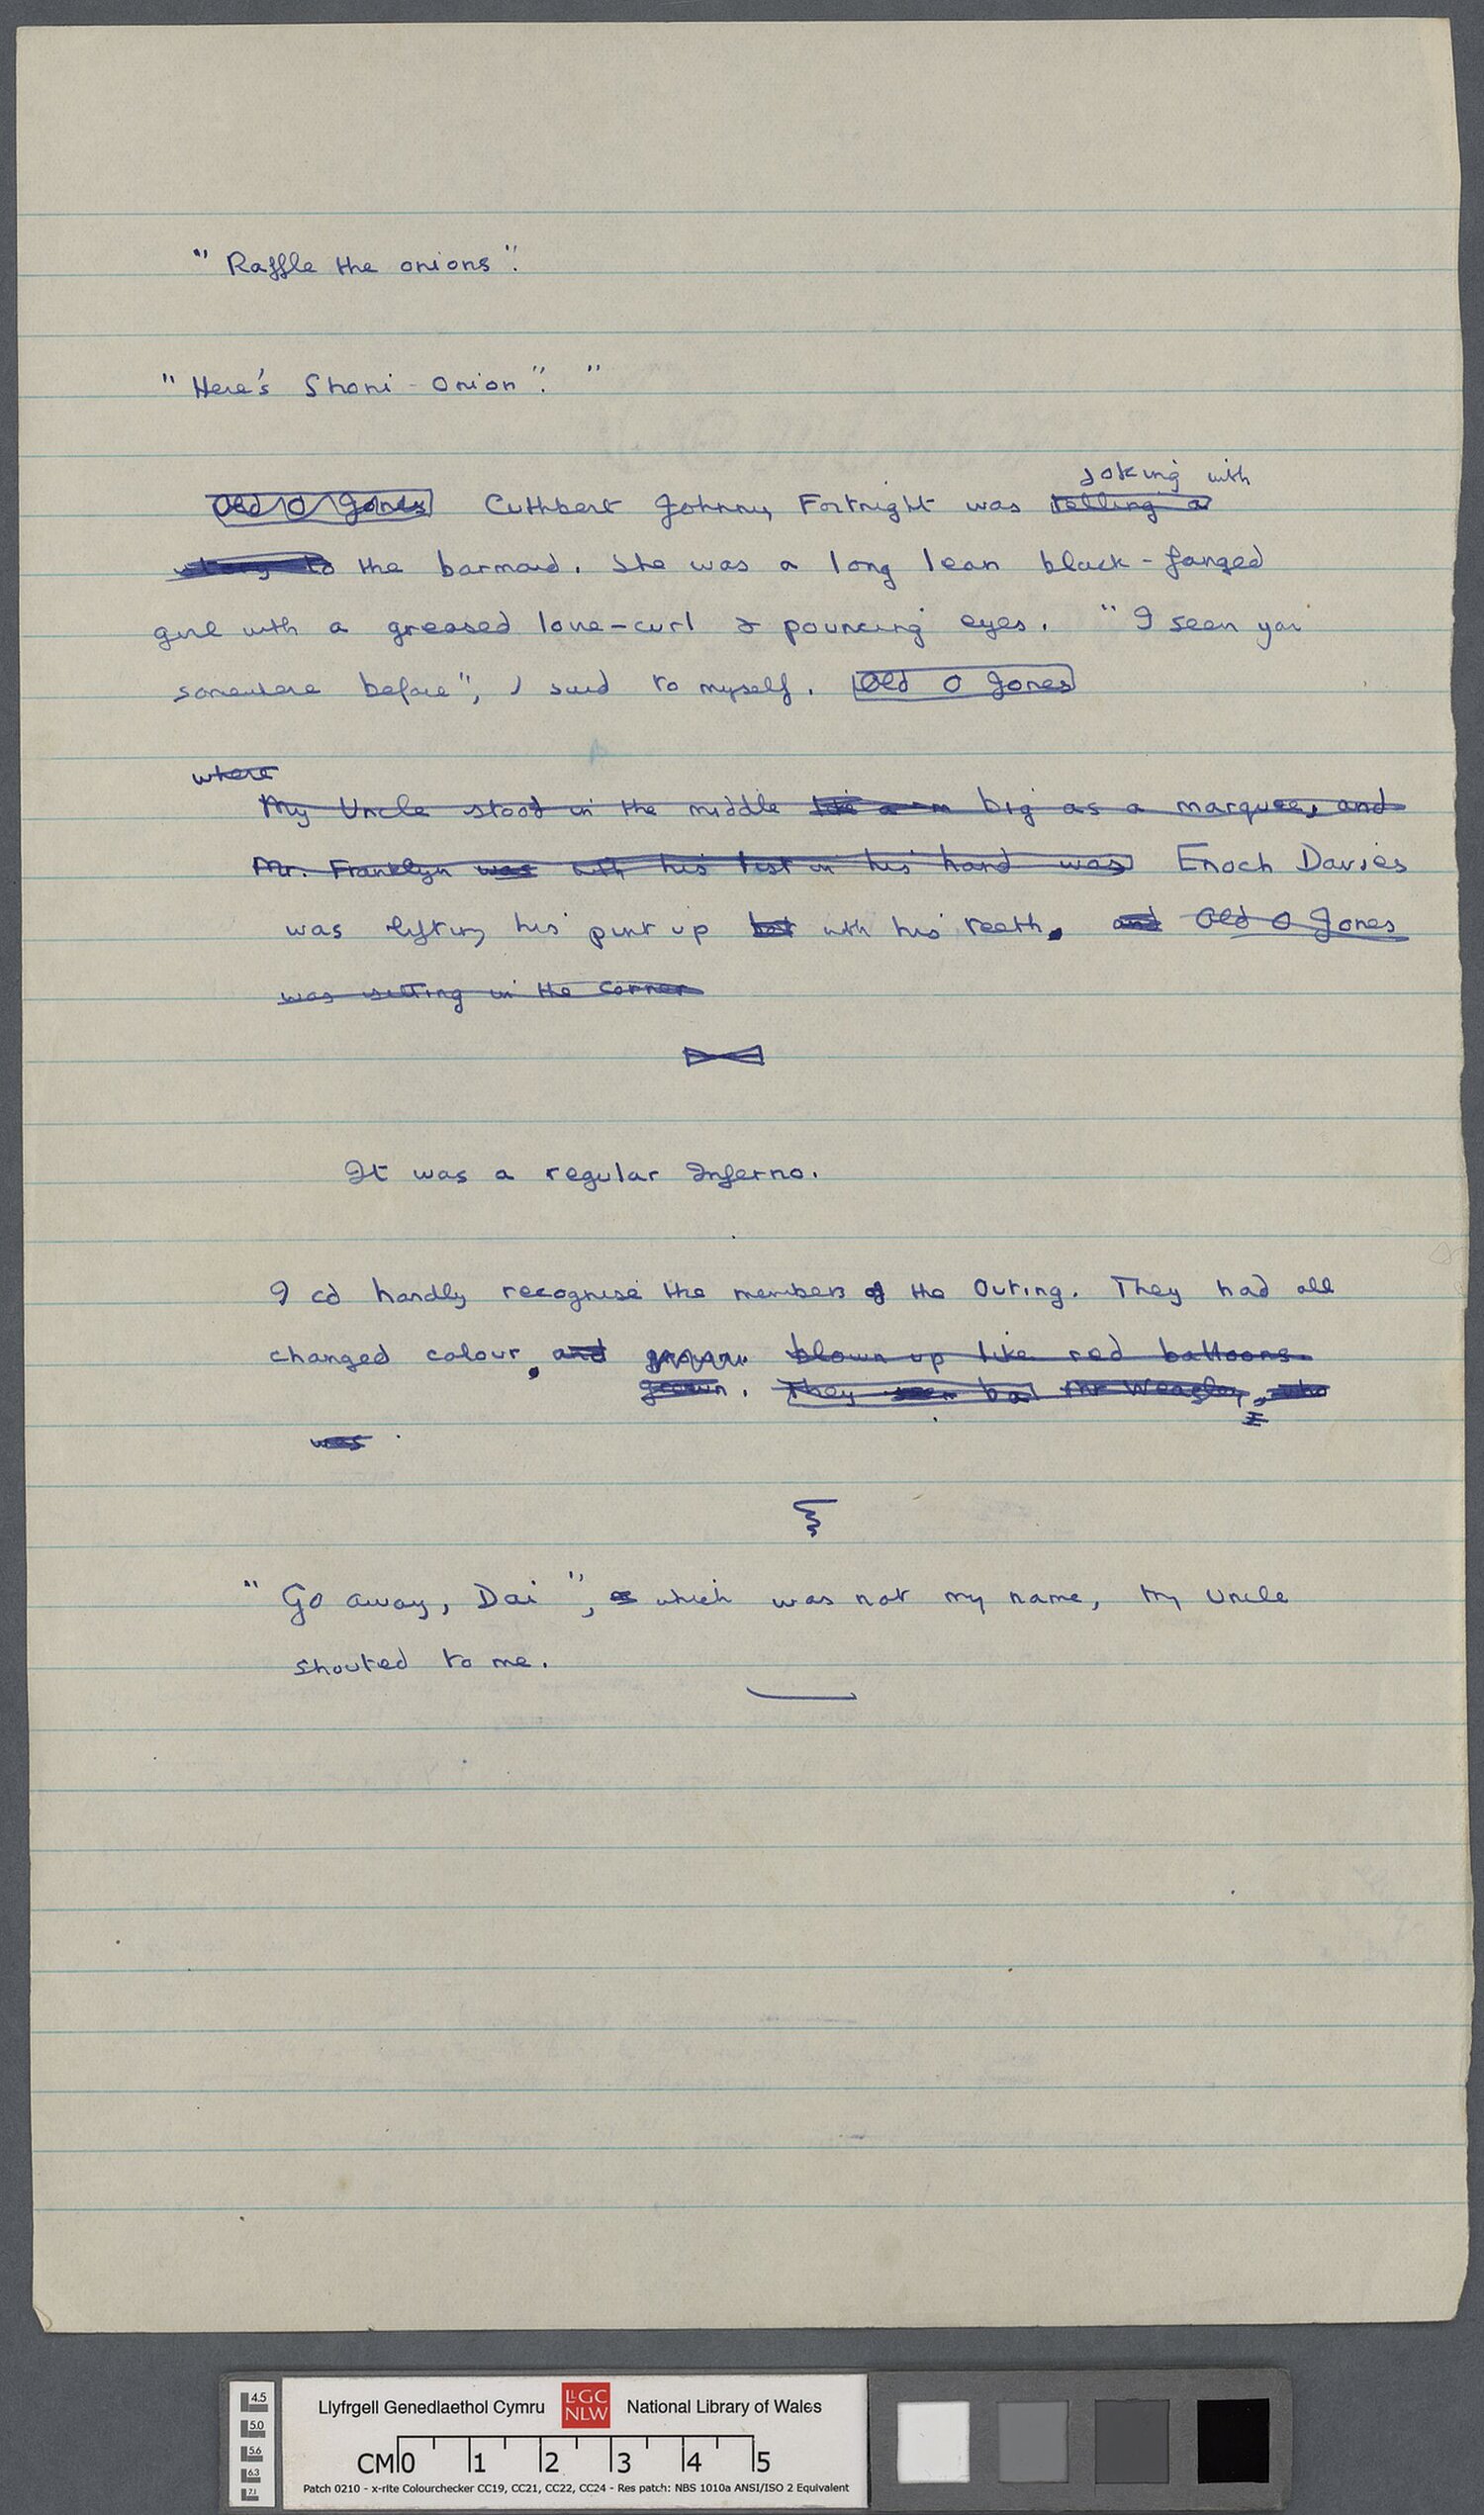 "Raffle the onions".
"Here's Shoni-Onion". "
joking with
Old O Jones Cuthbert Johnny Fortnight was telling a
story to the barmaid. She was a long lean black-fanged
girl with a greased love-curl & pouncing eyes. "I seen you
somewhere before", I said to myself. Old O Jones
where
My Uncle stood in the middle like a big as a marquee, and
Mr. Franklyn was with his list in his hand was Enoch Davies
was lifting his pint up but with his teeth. and Old O Jones
was sitting in the corner
It was a regular Inferno.
I cd hardly recognise the members of the Outing. They had all
changed colour, and blown up like red balloons.
grown. They Mr Weazley, who
was
"Go away, Dai", which was not my name, my Uncle
shouted to me.
4.5
5.0
5.6
6.3
7.1
Llyfrgell Genedlaethol Cymru LLGC NLW National Library of Wales
CM 0 1 2 3 4 5
Patch 0210 - x-rite Colourchecker CC19, CC21, CC22, CC24 - Res patch: NBS 1010a ANSI/ISO 2 Equivalent